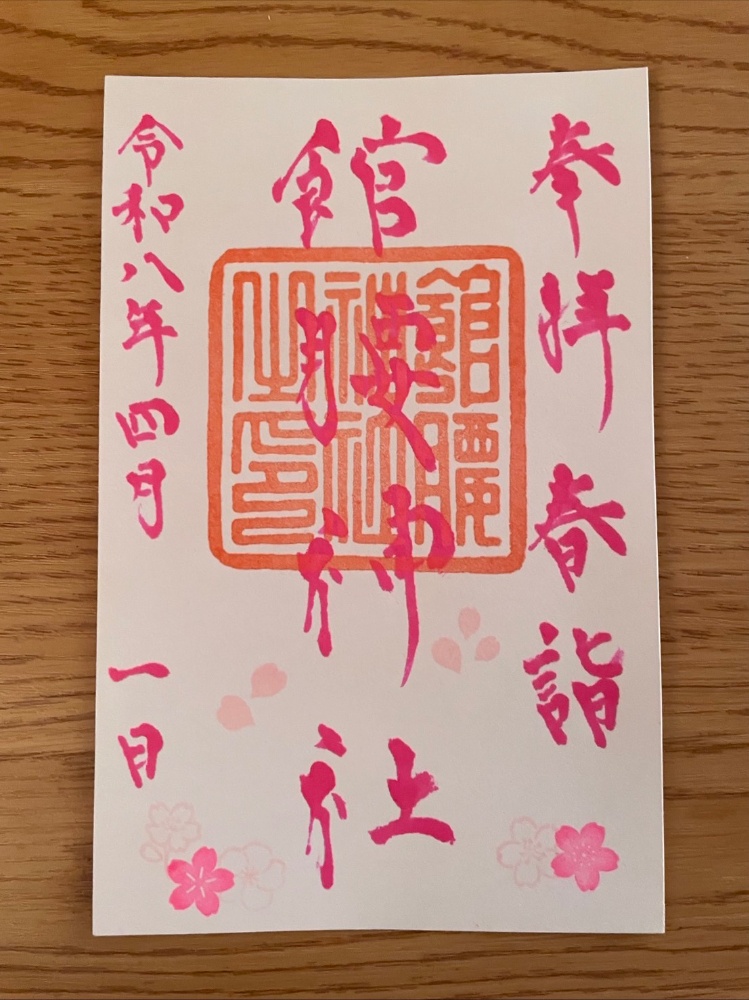 奉拝 春詣
館腰神社
館腰神社之印
令和八年四月 一日